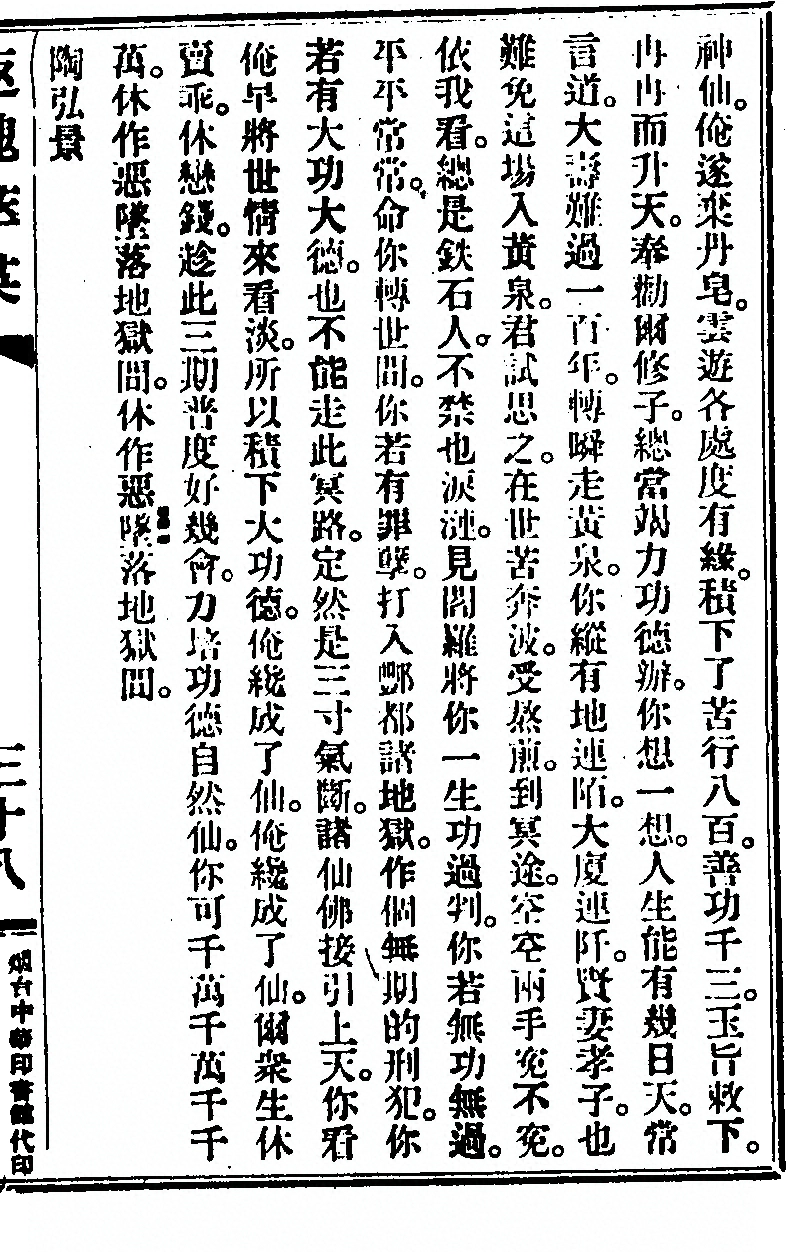 神仙。俺遂棄丹皂。雲遊各處度有緣。積下了苦行八百。善功千三。玉旨敕下。
冉冉而升天。奉勸爾修子。總當竭力功德辦。你想一想。人生能有幾日天。常
言道。大壽難過一百年。轉瞬走黃泉。你縱有地連陌。大廈連阡。賢妻孝子。也
難免這場入黃泉。君試思之。在世苦奔波。受熬煎。到冥途。空空兩手寃不寃。
依我看。總是鉄石人。不禁也淚漣。見閻羅將你一生功過判。你若無功無過。
平平常常。命你轉世間。你若有罪孽。打入酆都諸地獄。作個無期的刑犯。你
若有大功大德。也不能走此冥路。定然是三寸氣斷。諸仙佛接引上天。你看
俺早將世情來看淡。所以積下大功德。俺纔成了仙。俺纔成了仙。爾衆生休
賣乖。休戀錢。趁此三期普度好幾會。力培功德自然仙。你可千萬千萬千千
萬。休作惡墜落地獄間。休作惡墜落地獄間。
陶弘景
三十八
烟台中華印書館代印